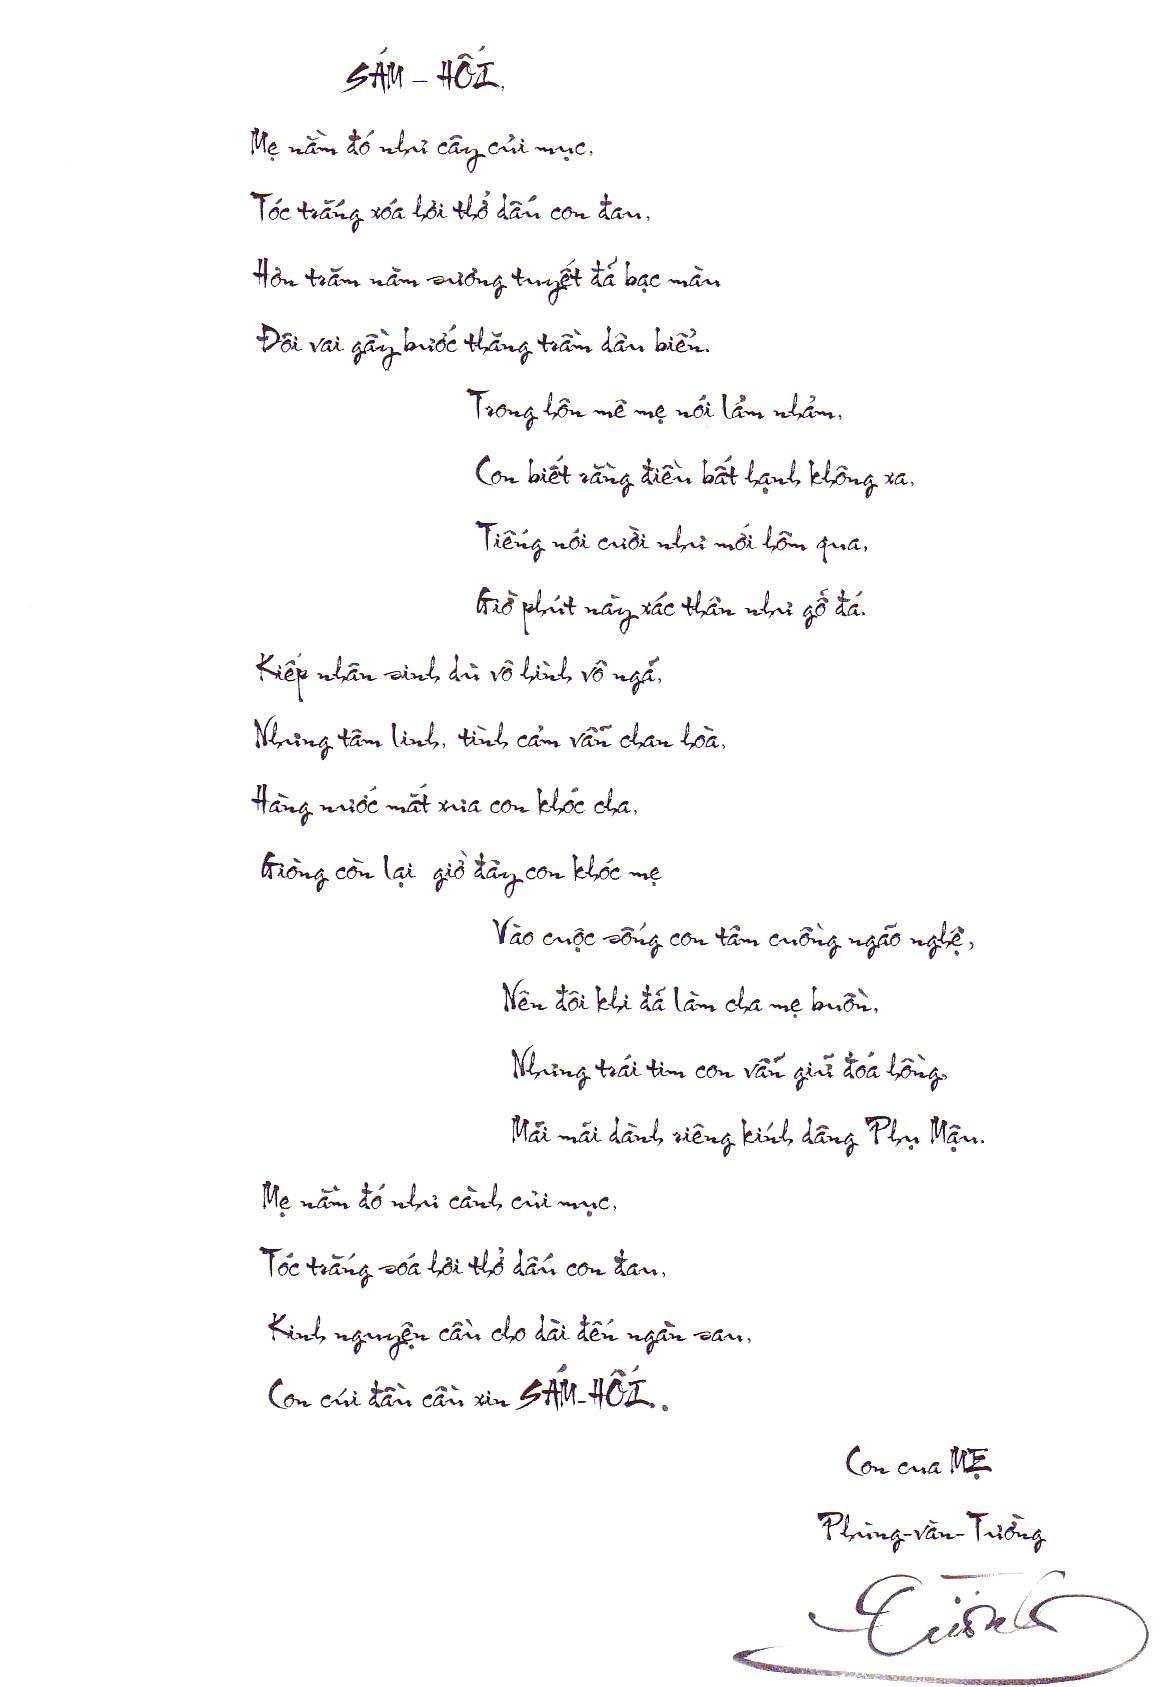 SÁM - HỐI,
Mẹ nằm đó như cây củi mục,
Tóc trắng xóa hơi thở dấu con đau,
Hơn trăm năm sương tuyết đã bạc màu
Đôi vai gầy bước thăng trầm dâu biển.
Trong hôn mê mẹ nói lảm nhảm,
Con biết rằng điều bất hạnh không xa,
Tiếng nói cười như mới hôm qua,
Giờ phút này xác thân như gỗ đá.
Kiếp nhân sinh dù vô hình vô ngã,
Nhưng tâm linh, tình cảm vẫn chan hòa,
Hàng nước mắt xưa con khóc cha,
Giòng còn lại giờ đây con khóc mẹ
Vào cuộc sống con tâm cuồng ngão nghệ,
Nên đôi khi đã làm cha mẹ buồn,
Nhưng trái tim con vẫn giữ đóa hồng,
Mãi mãi dành riêng kính dâng Phụ Mẫu.
Mẹ nằm đó như cành củi mục,
Tóc trắng sóa hơi thở dấu con đau,
Kinh nguyện cầu cho dài đến ngàn sau,
Con cúi đầu cầu xin SÁM-HỐI.
Con cua MẸ
Phùng-văn-Tường